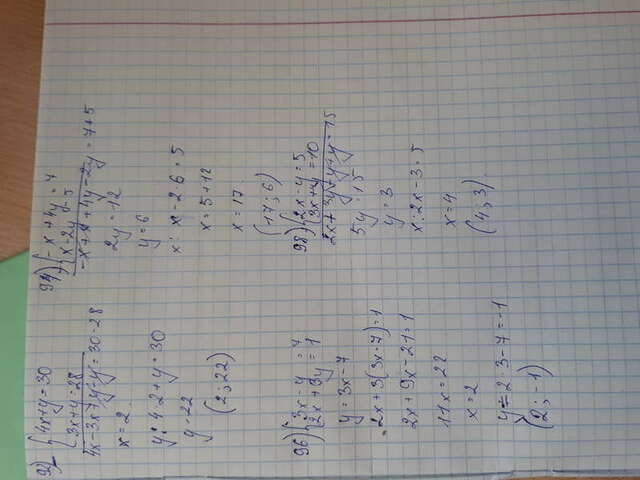 92) { 4x+y=30
3x+y=28
4x-3x+y-y=30-28
x=2
y: 4·2+y=30
y=22
(2;22)
94) { -x+4y=7
x-2y=5
-x+x+4y-2y=7+5
2y=12
y=6
x: x-2·6=5
x=5+12
x=17
(17;6)
96) { 3x-y=7
2x+3y=1
y=3x-7
2x+3(3x-7)=1
2x+9x-21=1
11x=22
x=2
y=2·3-7=-1
(2;-1)
98) { 2x-y=5
3x+y=10
2x+3y+y+y=15
5y=15
y=3
x: 2x-3=5
x=4
(4;3)